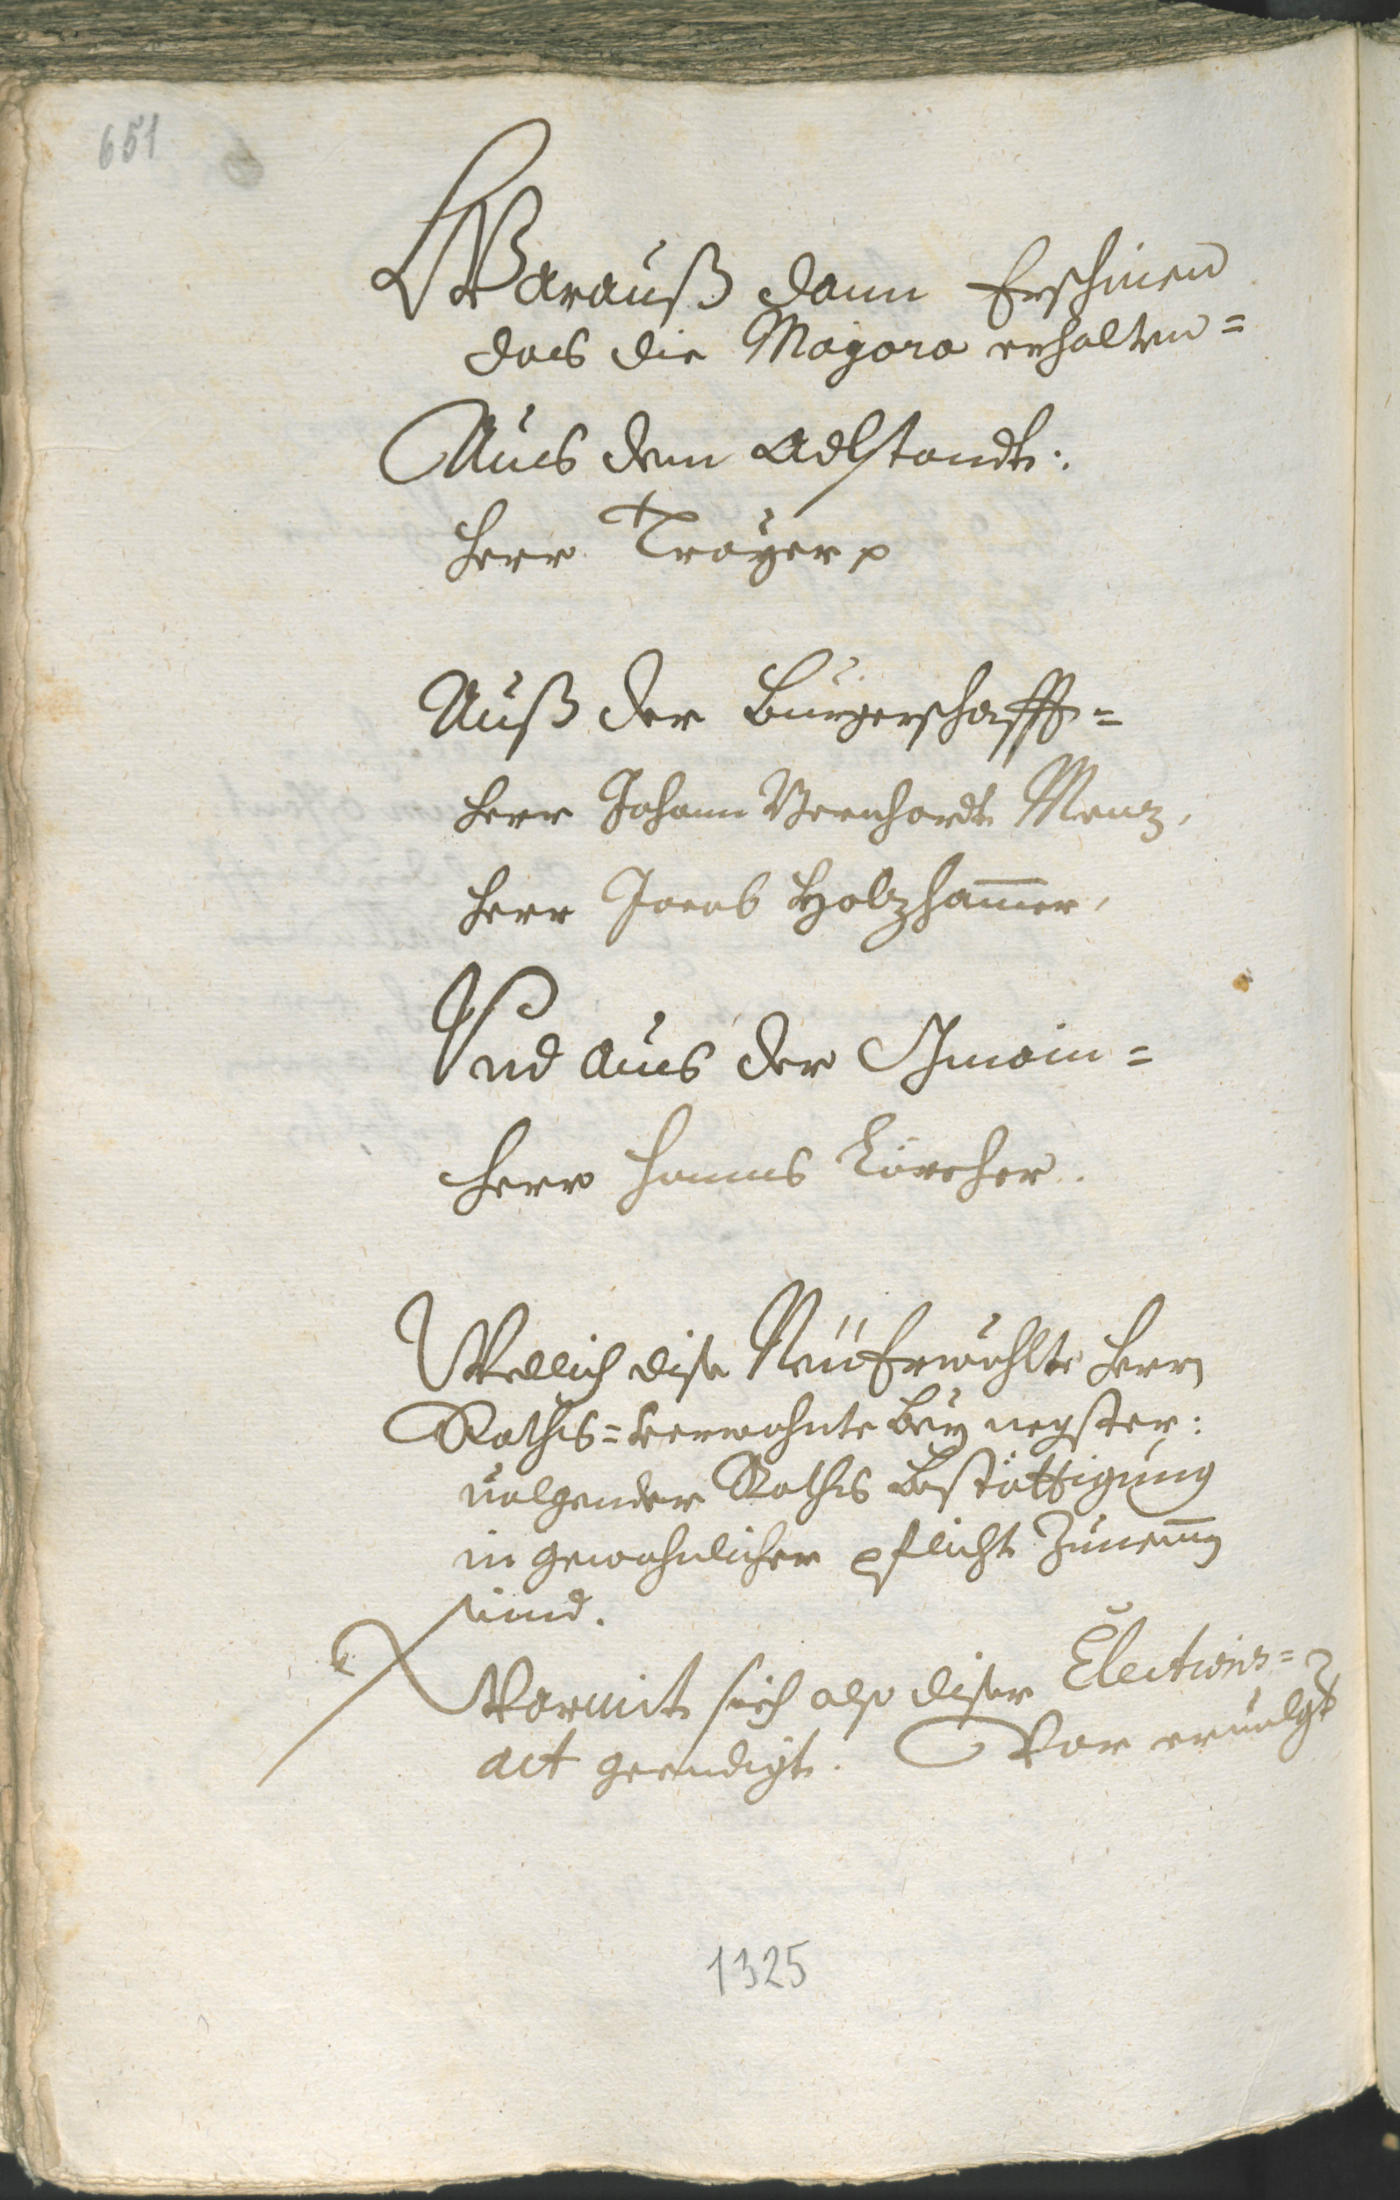 651
Warauß dann Erschinen
das die Magora erhalten=
Aus dem Adlstandt:
Herr Troyer p
Auß der Burgerschafft=
Herr Johann Bernhardt Menz,
Herr Jacob Holzham̅er,
Vnd aus der Gmain=
Herr Hanns Lörcher.
Wellich dise Neü Erwöhlte Herrn
Raths=Verwohnte bey negster:
uolgender Raths Bestättigung
in gewohnlicher pflicht Zunem̅
seind.
Warmit sich also diser Elections=
act geendigt. Vor eruolgt
1325